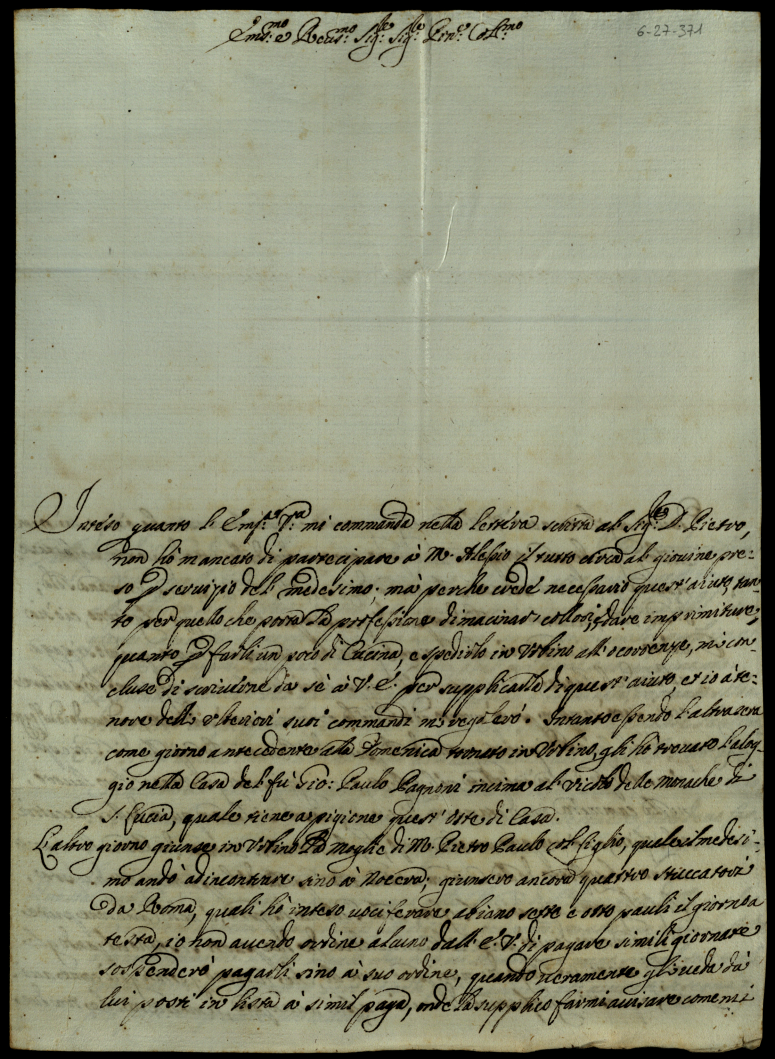 Em.mo e Reu.mo Sig.re Sig.re Pron.e Col.mo
6-27-371
Inteso quanto l'Em.za V.ra mi commanda nella lettera scritta al Sig.r D. Pietro,
non hò mancato di partecipare à M. Alessio il tutto circa al giouine pre-
so p seruizio del medesimo; mà perche crede necessario quest'aiuto, tan-
to per quello che porta la professione di macinar collori, e dare imprimiture,
quanto p farli un poco di Cucina, e spedirlo in Vrbino all'ocorrenze, mi con-
cluse di scriuerne da sè à V.E. per supplicarla di quest'aiuto, et io à te-
nore delli vlteriori suoi commandi mi regolerò. Intanto essendo l'altra sera
come giorno antecedente alla Domenica tornato in Vrbino, gli hò trouato l'alog-
gio nella Casa del fù Gio: Paulo Pagnoni incima al Vicolo delle Monache di
S. Lucia, quale tiene a pigione quest'Oste di Casa.
L'altro giorno giunse in Vrbino la moglie di M. Pietro Paulo col figlio, quale il medesi-
mo andò ad incontrare sino à Nocera; giunsero ancora quattro stuccatori
da Roma, quali hò inteso uociferare abiano sette e otto pauli il giorno a
testa, io non auendo ordine alcuno dall'E.V. di pagare simili giornate
sospenderò pagarli sino à suo ordine, quando ueramente gli ueda da
lui posti in lista à simil paga, onde la supplico farmi auisare come mi